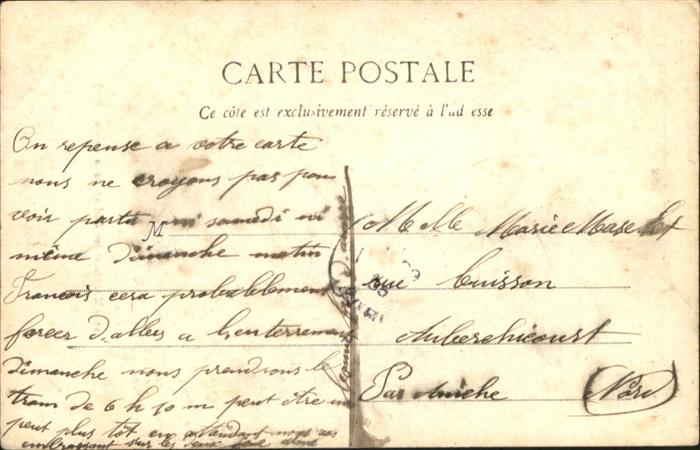 CARTE POSTALE
Ce côte est exclusivement réservé à l'ad esse
On repense a votre carte
nous ne croyons pas pou
voir partir ni samedi ni
même dimanche matin
Francois cera probablement
forcer d'aller a l'enterrement
dimanche nous prendrons le
tram de 6 h 50 m peut être un
peut plus tôt en attendant nous vous
embrassant sur les deux
M
Melle Marie
rue Cuisson
Auberchicourt
Par Aniche (Nord)